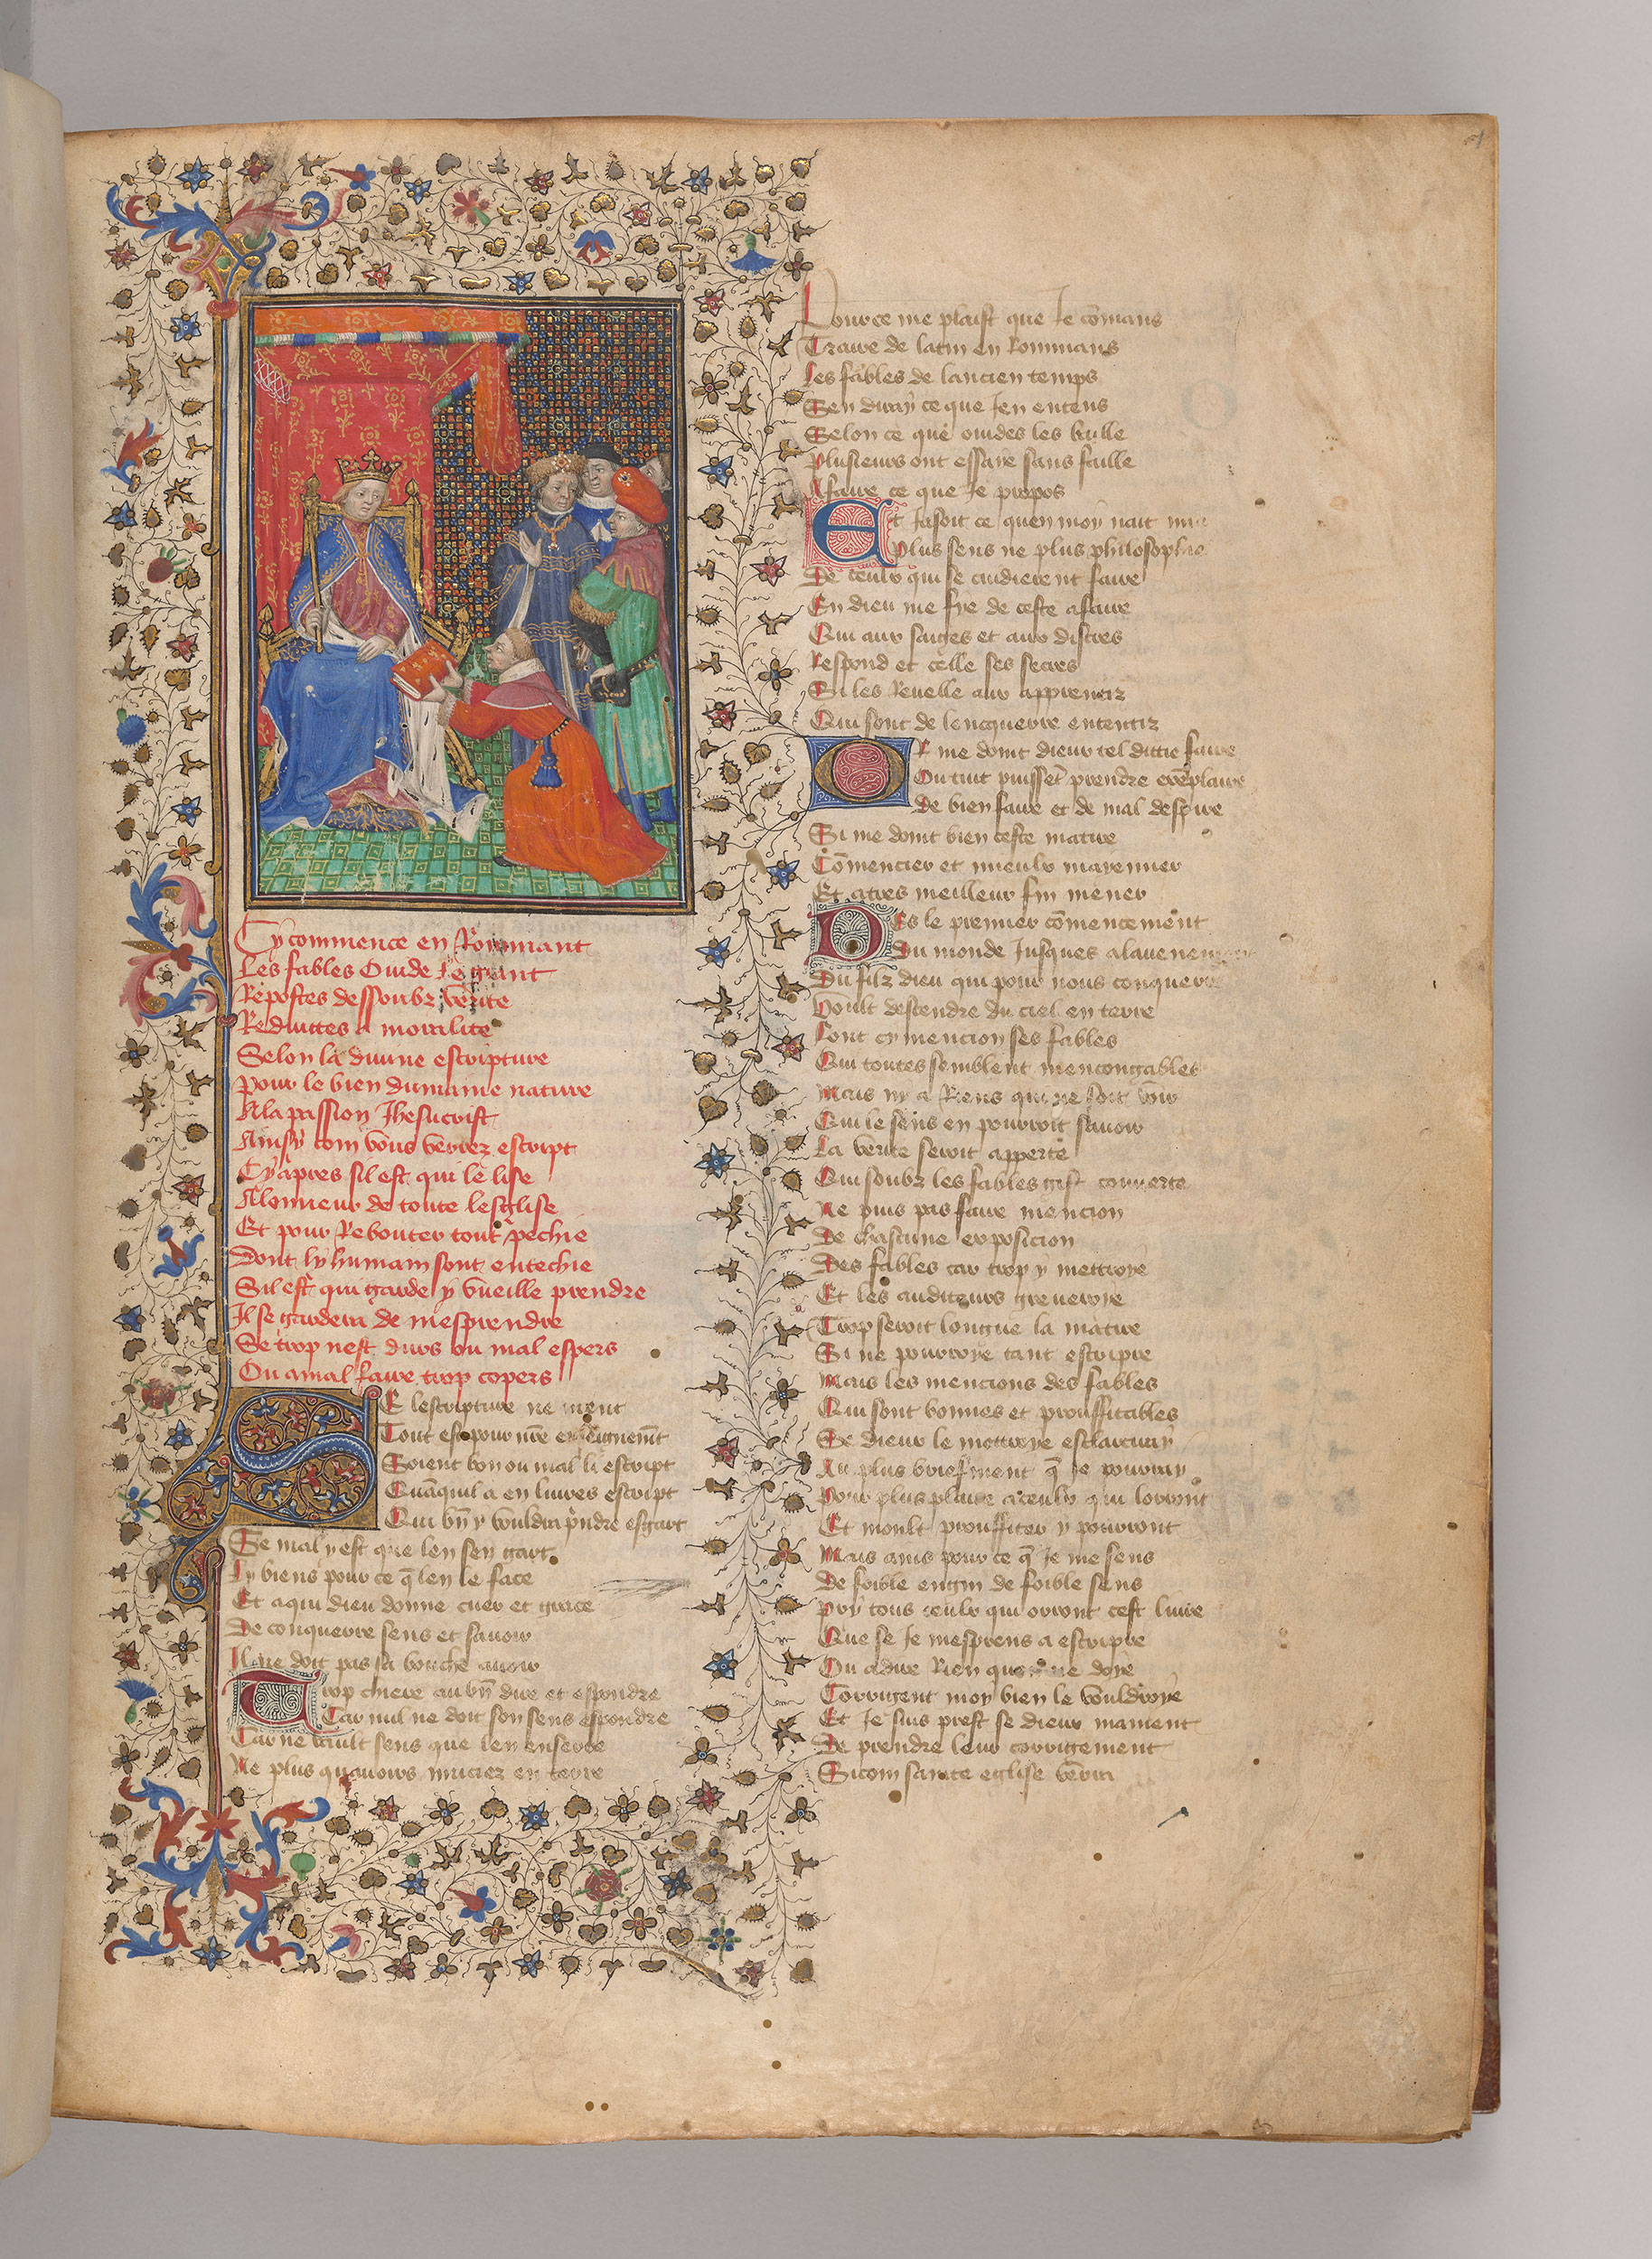 Cy commence en Rommant
Les fables Ouide le grant
Repostes dessoubz verite
Reduittes a moralite
Selon la diuine escripture
Pour le bien dumaine nature
A la passion Jhesucrist
Ainsy com vous verrez escript
Cy apres sil est qui le lise
A lonneur de toute lesglise
Et pour Rebouter tout pechie
Dont ly humain sont entechie
Sil est qui garde y vueille prendre
Il se gardera de mesprendre
Se trop nest durs ou mal espers
Ou a mal faire trop copers
Se lescripture ne ment
Tout est pour nr̄e enseignemēt
Soient bon ou mal li escript
Quāquil a en liures escript
Qui bn̄ y vouldra pndre esgart
Se mal y est que len sen gart
Ly biens pour ce q̄ len le face
Et a qui dieu donne cuer et grace
De conquerre sens et sauoir
Il ne doit pas sa bouche auoir
Trop chiere au bn̄ dire et espondre
Car nul ne doit son sens repondre
Car ne vault sens que len enserre
Ne plus quauoirs muciez en terre
Pour ce me plaist que Je cōmans
Traire de latin en Rommans
Les fables de lancien temps
Sen diray ce que Jen entens
Selon ce que ouides les baille
Plusieurs ont essaye sans faille
A faire ce que Je propos
Et Jasoit ce quen moy nait mie
Plus sens ne plus philosophie
De ceulx qui se cuidierent faire
En dieu me fye de ceste afaire
Qui aux saiges et aux discres
Respond et celle ses secres
Si les Reuelle aux apprentiz
Qui sont de lencquerre ententiz
Or me doint dieux tel dittie faire
Ou tuit puissēt prendre exēplaire
De bien faire et de mal despire
Si me doint bien ceste matire
Cōmencier et mieulx moyenner
Et a tres meilleur fin mener
Des le premier cōmencement
Du monde Jusques a lauenement
Du filz dieu qui pour nous conquerre
Voult descendre du ciel en terre
Font cy mencion ses fables
Qui toutes semblent mencongables
Mais ny a Riens qui ne soit voir
Qui le sens en pourroit sauoir
La verite seroit apperte
Qui soubz les fables gist couuerte
Ne puis pas faire mencion
De chascune exposicion
Des fables car trop y mettroye
Et les auditeurs greueroye
Trop seroit longue la matire
Si ne pourroye tant escripre
Mais les mencions des fables
Qui sont bonnes et prouffitables
Se dieux le mottroye esclarciray
Au plus briefment q̄ Je pourray
Pour plus plaire a ceulx qui lorront
Et moult prouffiter y pourront
Mais amis pour ce q̄ Je me sens
De foible engin de foible sens
Pry tous ceulx qui orront cest liure
Que se Je mesprens a escripre
Ou a dire Rien que Je ne doye
Corrigent moy bien le vouldroye
Et Je suis prest se dieux mament
De prendre leur corrigement
Si com sainte eglise verra